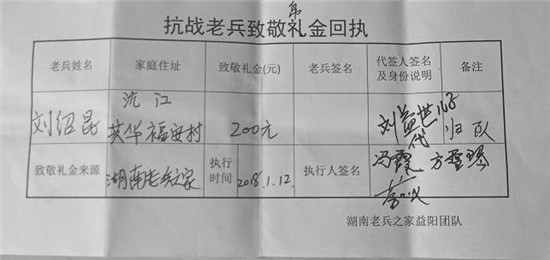 抗战老兵致敬礼金回执
老兵姓名 家庭住址 致敬礼金(元) 老兵签名 代签人签名及身份说明 备注
刘绍昆 沅江 共华福安村 200元 刘益世 代 归队
致敬礼金来源 湖南老兵之家 执行时间 2018.1.12. 执行人签名 冯霞
湖南老兵之家益阳团队